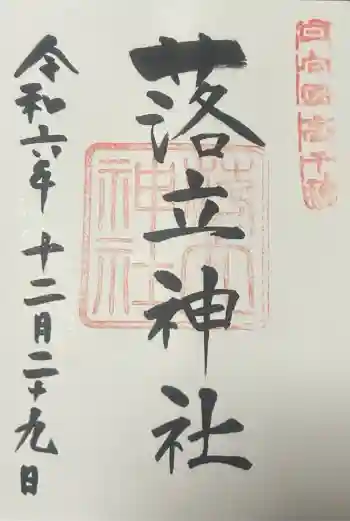 日向國高千穂
落立神社
落立神社
令和六年 十二月二十九日